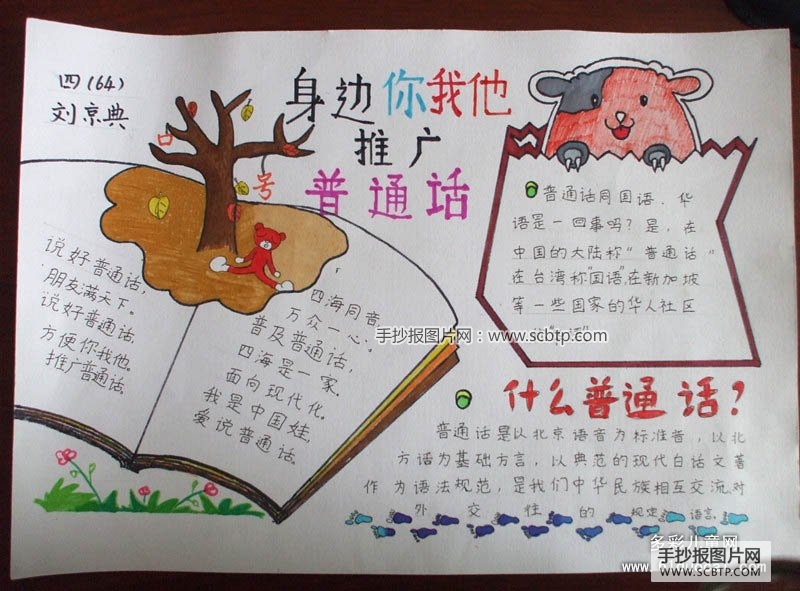 四(64)
刘京典
身边你我他
推广
普通话
口
号
说好普通话,
朋友满天下。
说好普通话
方便你我他。
推广普通话,
四海同音,
万众一心,
普及普通话,
四海是一家。
面向现代化。
我是中国娃,
爱说普通话。
普通话同国语、华
语是一回事吗?是,在
中国的大陆称"普通话"
在台湾称"国语",在新加坡
等一些国家的华人社区
手抄报图片网:www.scbtp.com
什么普通话?
普通话是以北京语音为标准音,以北
方话为基础方言,以典范的现代白话文著
作为语法规范,是我们中华民族相互交流,对
外交往的规定语言.
多彩儿童网
手抄报图片网
WWW.SCBTP.COM